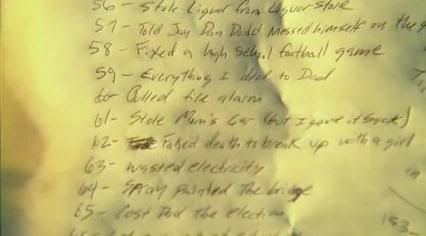 56 - Stole Liquor from Liquor store
57 - Told Joy Dan Dodd Messed himself on the g
58 - Fixed a high School football game
59 - Everything I did to Dad
60 - Pulled fire alarm
61 - Stole Mom's Car (but I gave it back)
62 - Faked death to break up with a girl
63 - wasted electricity
64 - Spray painted The bridge
65 - Cost Dad the election
183 -